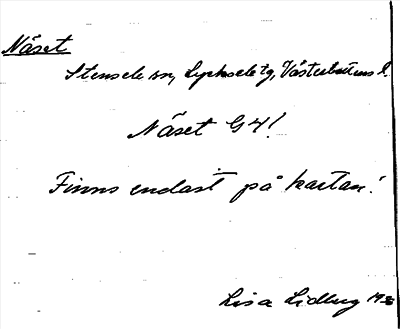 Näset
Stensele sn, Lycksele tg, Västerbottens l.
Näset G4!
Finns endast på kartan!
Lisa Lidberg